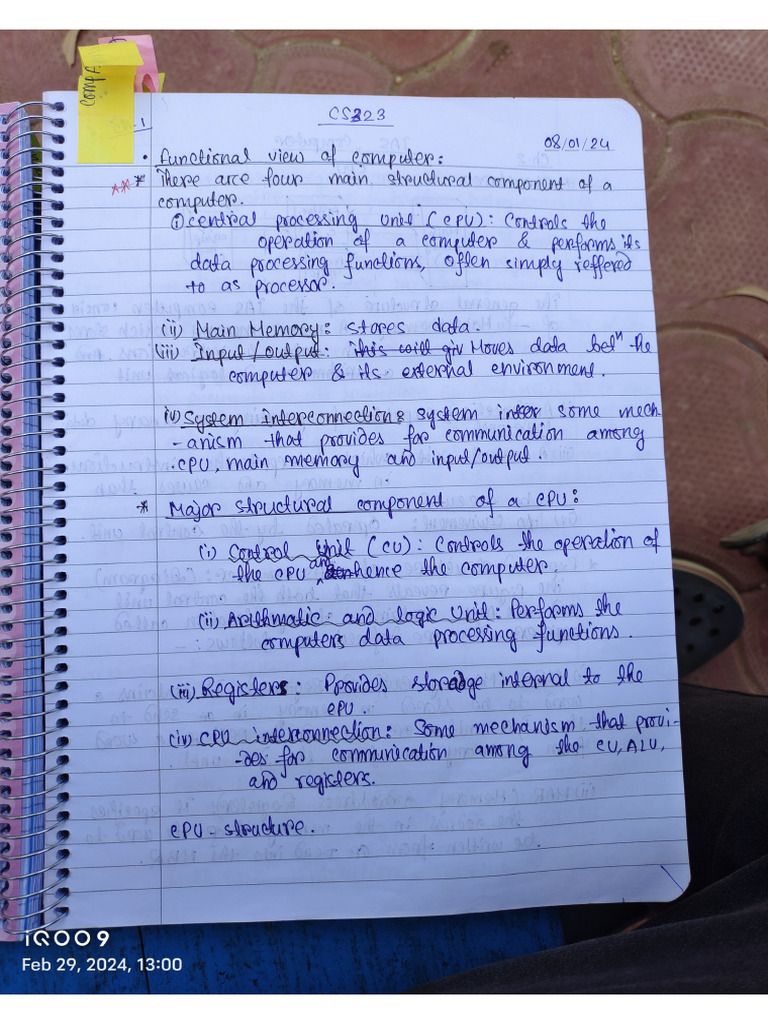 Comp A
CS323
-1
08/01/24
• functional view of computer:
** * There are four main structural component of a
computer.
(i) central processing unit (CPU): Controls the
operation of a computer & performs its
data processing functions, often simply reffered
to as processor.
(ii) Main Memory: stores data.
(iii) Input/output: This will giv Moves data betn the
computer & its external environment.
iv) System interconnection: system inter some mech-
-anism that provides for communication among
CPU, main memory and input/output.
* Major structural component of a CPU:
(i) Control Unit (CU): Controls the operation of
the CPU and hence the computer.
(ii) Arithmatic and logic Unit: Performs the
computers data processing functions.
(iii) Registers: Provides storage internal to the
CPU.
(iv) CPU interconnection: Some mechanism that provi-
-des for communication among the CU, ALU,
and registers.
CPU - structure.
iQOO 9
Feb 29, 2024, 13:00